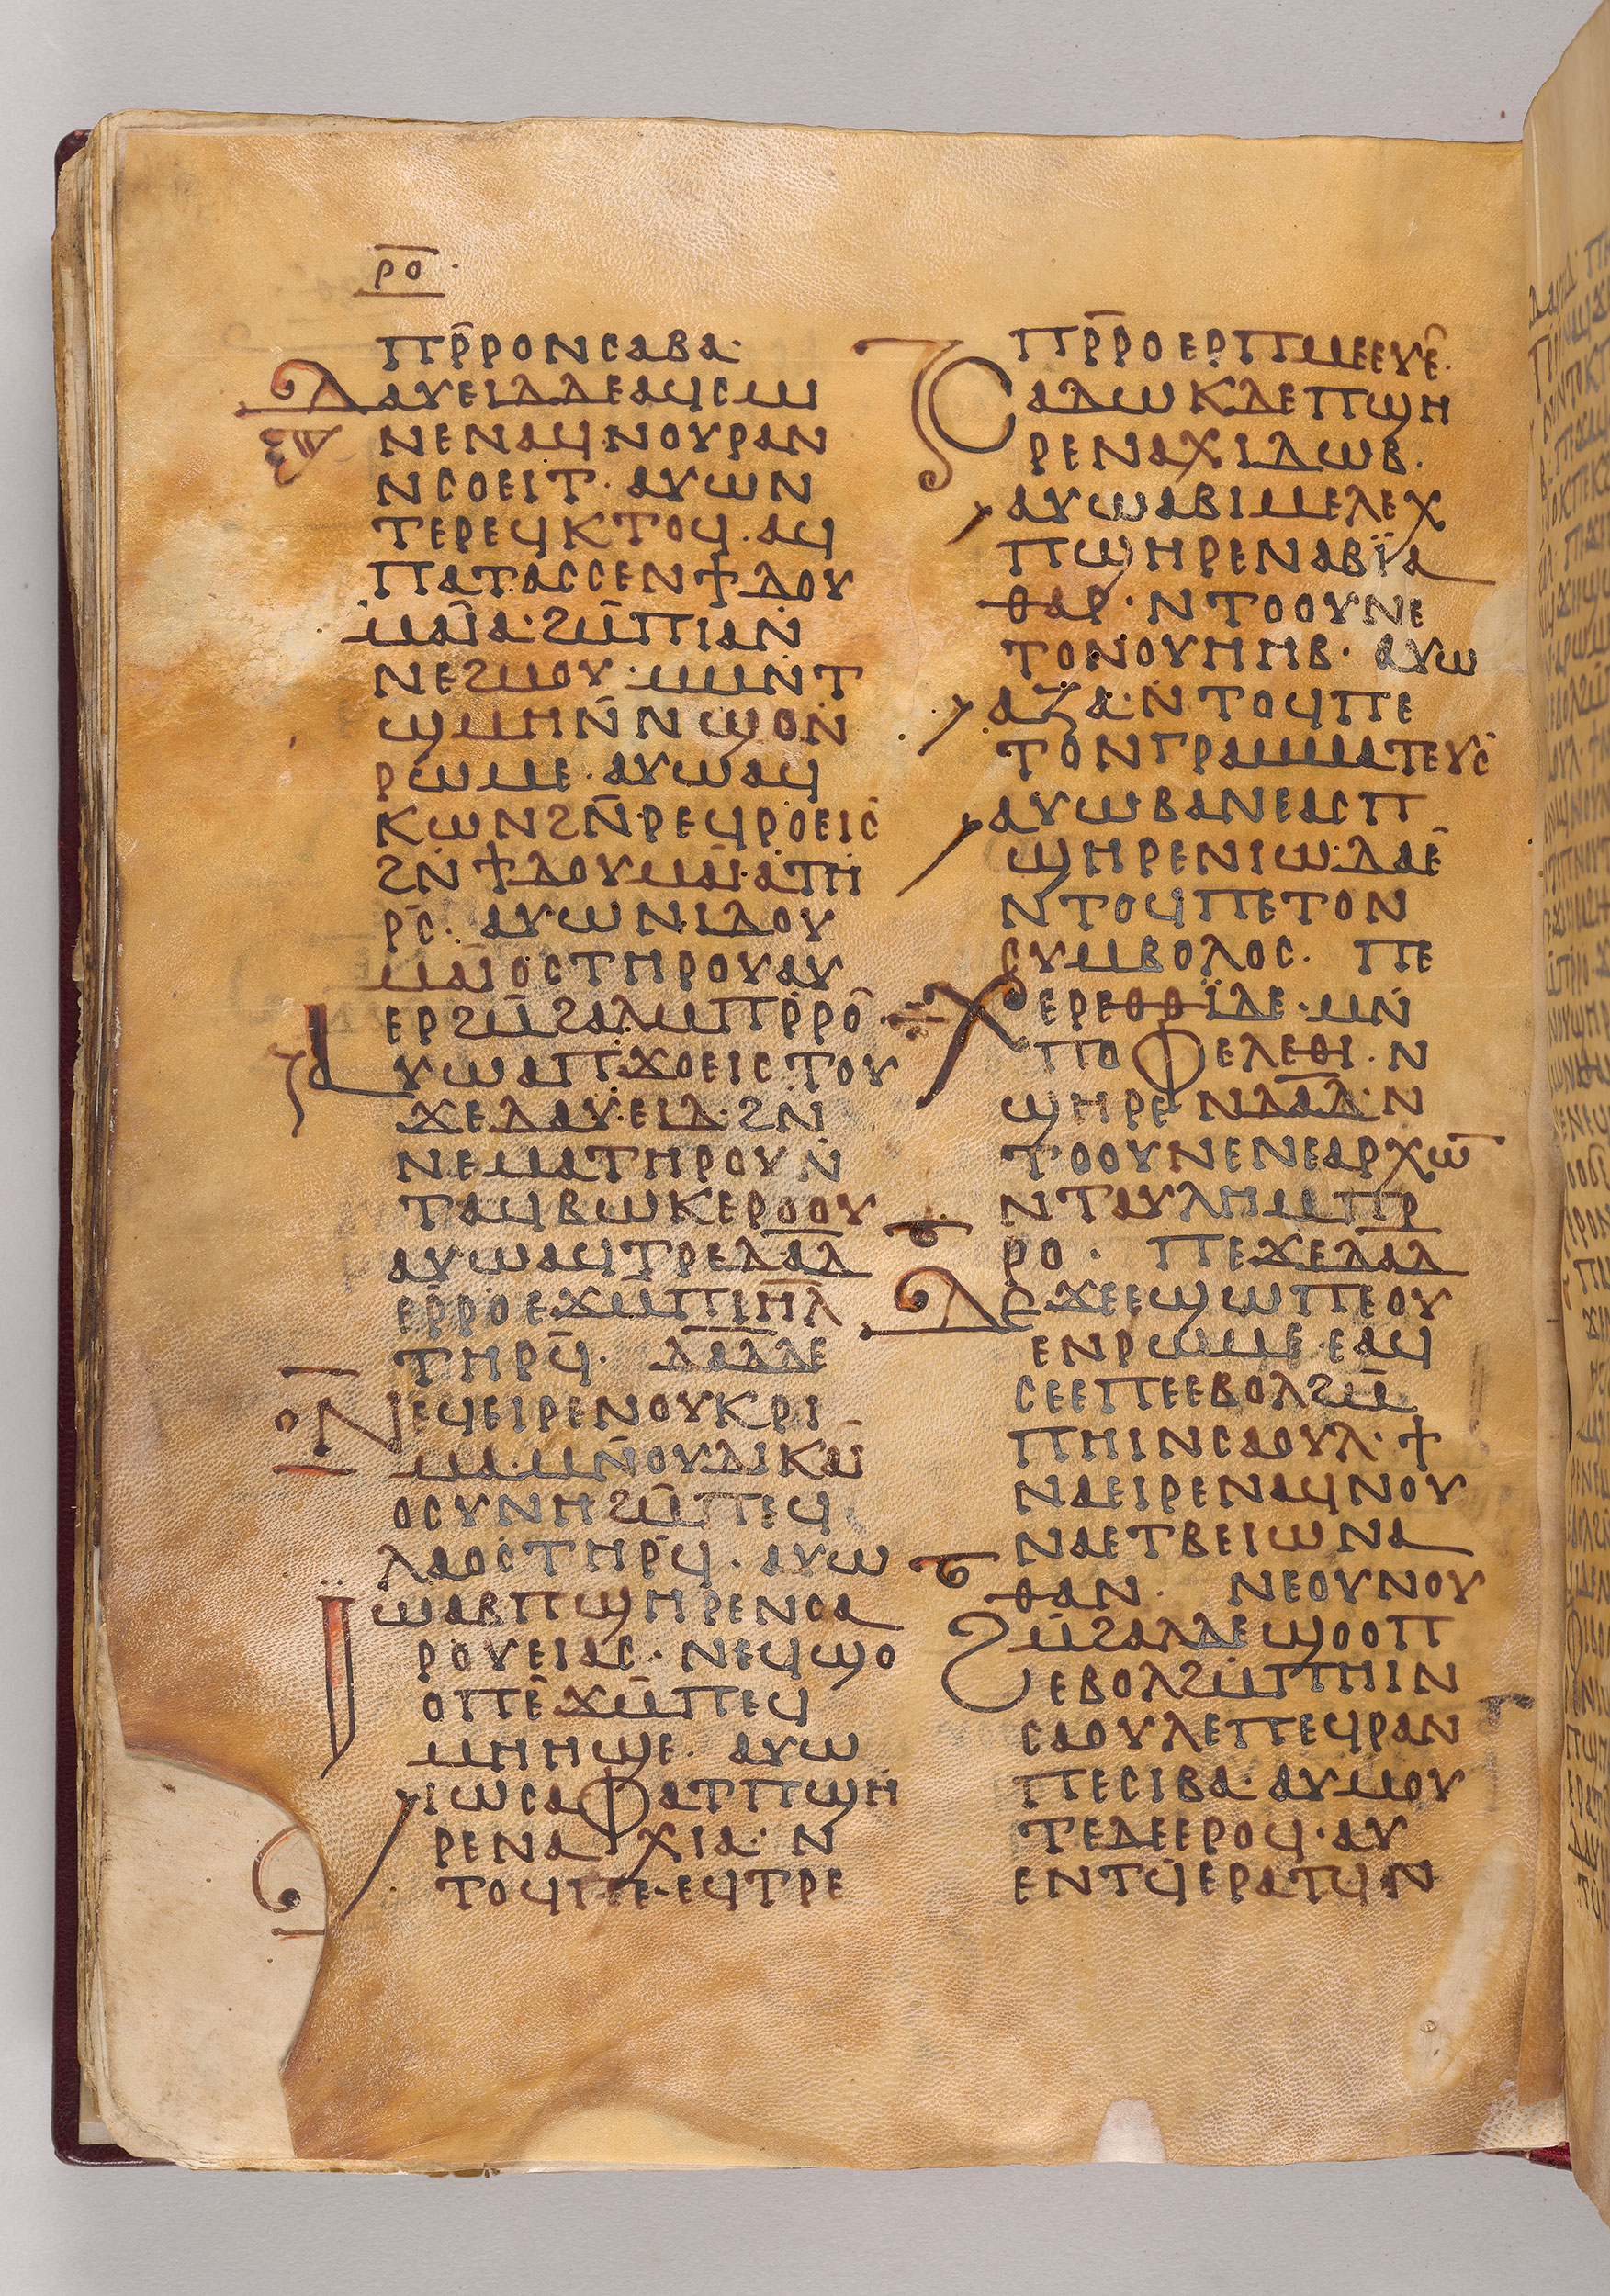 ⲣⲟ
ⲡⲣ̅ⲣⲟⲛⲥⲁⲃⲁ·
ⲇⲁⲩⲉⲓⲇⲇⲉⲁϥⲥⲙ
ⲛⲉⲛⲁϥ·ⲛⲟⲩⲣⲁⲛ
ⲛⲥⲟⲉⲓⲧ·ⲁⲩⲱⲛ
ⲧⲉⲣⲉϥⲕⲧⲟϥ·ⲁϥ
ⲡⲁⲧⲁⲥⲥⲉⲛϯⲇⲟⲩ
ⲙⲁⲓ̈ⲁ·ϩⲙ̅ⲡⲓⲁⲛ
ⲛⲉϩⲙⲟⲩ·ⲙⲙⲛⲧ
ϣⲙⲏⲛ̅ⲛϣⲟⲛ
ⲣⲱⲙⲉ·ⲁⲩⲱⲁϥ
ⲕⲱⲛϩⲛ̅·ⲣⲉϥⲣⲟⲉⲓⲥ
ϩⲛϯⲇⲟⲩⲙⲁⲓ̈·ⲁⲧⲏ
ⲣⲥ̅·ⲁⲩⲱⲛⲓⲇⲟⲩ
ⲙⲁⲓ̈ⲟⲥⲧⲏⲣⲟⲩⲁⲩ
ⲉⲣϩⲙ̅ϩⲁⲗⲙⲡⲣ̅ⲣⲟ
ⲁⲩⲱⲁⲡϫⲟⲉⲓⲥⲧⲟⲩ
ϫⲉⲇⲁⲩ·ⲉⲓⲇ·ϩⲛ
ⲛⲉⲙⲁⲧⲏⲣⲟⲩⲛ
ⲧⲁϥⲃⲱⲕⲉⲣⲟⲟⲩ
ⲁⲩⲱⲁϥⲧⲣⲉⲇⲁ̅ⲇ
ⲉⲣ̅ⲣⲟⲉϫⲙ̅ⲡⲓⲏ̅ⲗ
ⲧⲏⲣϥ̅· ⲇⲁ̅ⲇⲇⲉ
ⲛⲉϥⲉⲓⲣⲉⲛⲟⲩⲕⲣⲓ
ⲙⲁ·ⲙⲛ̅ⲟⲩⲇⲓⲕⲁⲓ̈
ⲟⲥⲩⲛⲏϩⲙ̅ⲡⲉϥ
ⲗⲁⲟⲥⲧⲏⲣϥ̅·ⲁⲩⲱ
ⲓ̈ⲱⲁⲃⲡϣⲏⲣⲉⲛⲥⲁ
ⲣⲟⲩⲉⲓⲁⲥ·ⲛⲉϥϣⲟ
ⲟⲡⲡⲉ̅ϫⲙ̅ⲡⲉϥ
ⲙⲏⲏϣⲉ·ⲁⲩⲱ
ⲓⲱⲥⲁⲫⲁⲧⲡϣⲏ
ⲣⲉⲛⲁⲭⲓⲁ·ⲛ
ⲧⲟϥⲡⲉ·ⲉϥⲧⲣⲉ
ⲡⲣ̅ⲣⲟⲉⲣⲡⲙⲉⲉⲩⲉ̅·
ⲥⲁⲇⲱⲕⲇⲉⲡϣⲏ
ⲣⲉⲛⲁⲭⲓⲇⲱⲃ·
ⲁⲩⲱⲁⲃⲓⲙⲉⲗⲉⲭ
ⲡϣⲏⲣⲉⲛⲁⲃⲓ̈ⲁ
ⲑⲁⲣ·ⲛⲧⲟⲟⲩⲛⲉ
ⲧⲟⲛⲟⲩⲏⲏⲃ·ⲁⲩⲱ
ⲁⲍⲁ·ⲛⲧⲟϥⲡⲉ
ⲧⲟⲛⲅⲣⲁⲙⲙⲁⲧⲉⲩⲥ
ⲁⲩⲱⲃⲁⲛⲉⲁⲥⲡ
ϣⲏⲣⲉⲛⲓⲱ·ⲇⲁⲉ̅
ⲛⲧⲟϥⲡⲉⲧⲟⲛ
ⲥⲩⲙⲃⲟⲗⲟⲥ· ⲡⲉ
ⲭⲉⲣⲉⲑⲑⲓ̈ⲇⲉ·ⲙⲛ
ⲡⲟⲫⲉⲗⲉⲑⲓ·ⲛ
ϣⲏⲣⲉⲛⲇⲁ̅ⲇ·ⲛ
ⲧⲟⲟⲩⲛⲉⲛⲉⲁⲣⲭⲱ̅
ⲛⲧⲁⲩⲗⲏⲙⲡⲣ̅
ⲣⲟ· ⲡⲉϫⲉⲇⲁ̅ⲇ
ⲇⲉϫⲉⲉϣⲱⲡⲉⲟⲩ
ⲉⲛⲣⲱⲙⲉ·ⲉⲁϥ
ⲥⲉⲉⲡⲉⲉⲃⲟⲗϩⲙ̅
ⲡⲏⲓⲛⲥⲁⲟⲩⲗ·ϯ
ⲛⲁⲉⲓⲣⲉⲛⲁϥⲛⲟⲩ
ⲛⲁⲉⲧⲃⲉⲓⲱⲛⲁ
ⲑⲁⲛ· ⲛⲉⲟⲩⲛⲟⲩ
ϩⲙ̅ϩⲁⲗⲇⲉϣⲟⲟⲡ
ⲉⲃⲟⲗϩⲙ̅ⲡⲏⲓⲛ
ⲥⲁⲟⲩⲗⲉⲡⲉϥⲣⲁⲛ
ⲡⲉⲥⲓⲃⲁ·ⲁⲩⲙⲟⲩ
ⲧⲉⲇⲉⲉⲣⲟϥ·ⲁⲩ
ⲉⲛⲧϥ̅ⲉⲣⲁⲧϥⲛ